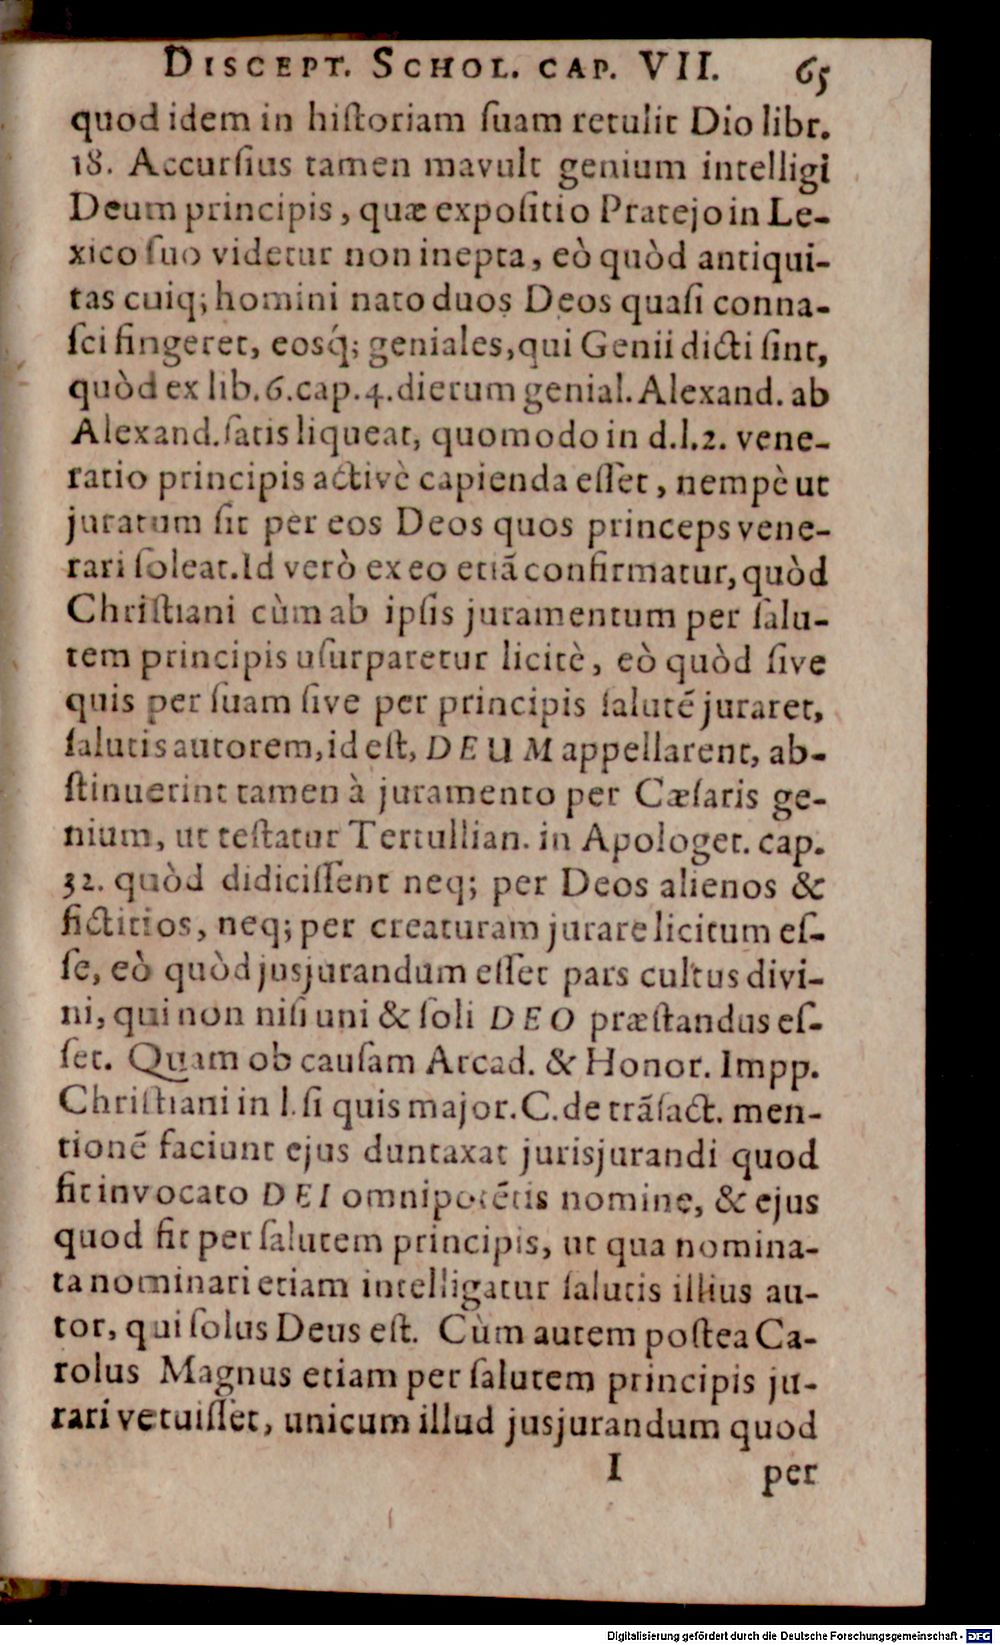 DISCEPT. SCHOL. CAP. VII. 65
quod idem in hiſtoriam ſuam retulit Dio libr.
18. Accurſius tamen mavult genium intelligi
Deum principis, quæ expoſitio Pratejo in Le-
xico ſuo videtur non inepta, eò quòd antiqui-
tas cuiq; homini nato duos Deos quaſi conna-
ſci fingeret, eosq́; geniales, qui Genii dicti ſint,
quòd ex lib. 6. cap. 4. dierum genial. Alexand. ab
Alexand. ſatis liqueat, quomodo in d. l. 2. vene-
ratio principis activè capienda eſſet, nempè ut
juratum ſit per eos Deos quos princeps vene-
rari ſoleat. Id verò ex eo etiã confirmatur, quòd
Chriſtiani cùm ab ipſis juramentum per ſalu-
tem principis uſurparetur licitè, eò quòd ſive
quis per ſuam ſive per principis ſalutẽ juraret,
ſalutis autorem, id eſt, DEUM appellarent, ab-
ſtinuerint tamen à juramento per Cæſaris ge-
nium, ut teſtatur Tertullian. in Apologet. cap.
32. quòd didiciſſent neq; per Deos alienos &
fictitios, neq; per creaturam jurare licitum eſ-
ſe, eò quòd jusjurandum eſſet pars cultus divi-
ni, qui non niſi uni & ſoli DEO præſtandus eſ-
ſet. Quam ob cauſam Arcad. & Honor. Impp.
Chriſtiani in l. ſi quis major. C. de trãſact. men-
tionẽ faciunt ejus duntaxat jurisjurandi quod
fit invocato DEI omnipotẽtis nomine, & ejus
quod fit per ſalutem principis, ut qua nomina-
ta nominari etiam intelligatur ſalutis illius au-
tor, qui ſolus Deus eſt. Cùm autem poſtea Ca-
rolus Magnus etiam per ſalutem principis ju-
rari vetuiſſet, unicum illud jusjurandum quod
I per
Digitalisierung gefördert durch die Deutsche Forschungsgemeinschaft - DFG